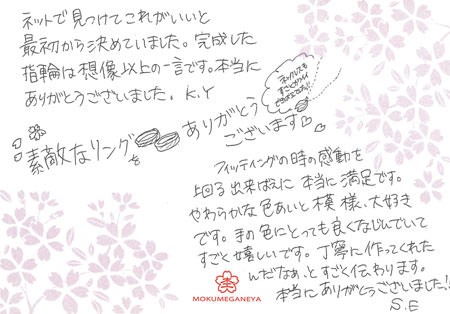 ネットで見つけてこれがいいと
最初から決めていました。完成した
指輪は想像以上の一言です。本当に
ありがとうございました。K.Y
素敵なリングを
ありがとう
ございます
フィッティングの時の感動を
上回る出来ばえに本当に満足です。
やわらかな色あいと模様、大好き
です。手の色にとっても良くなじんでいて
すごく嬉しいです。丁寧に作ってくれた
んだなぁ、とすごく伝わります。
本当にありがとうございました!!
S.E
MOKUMEGANEYA